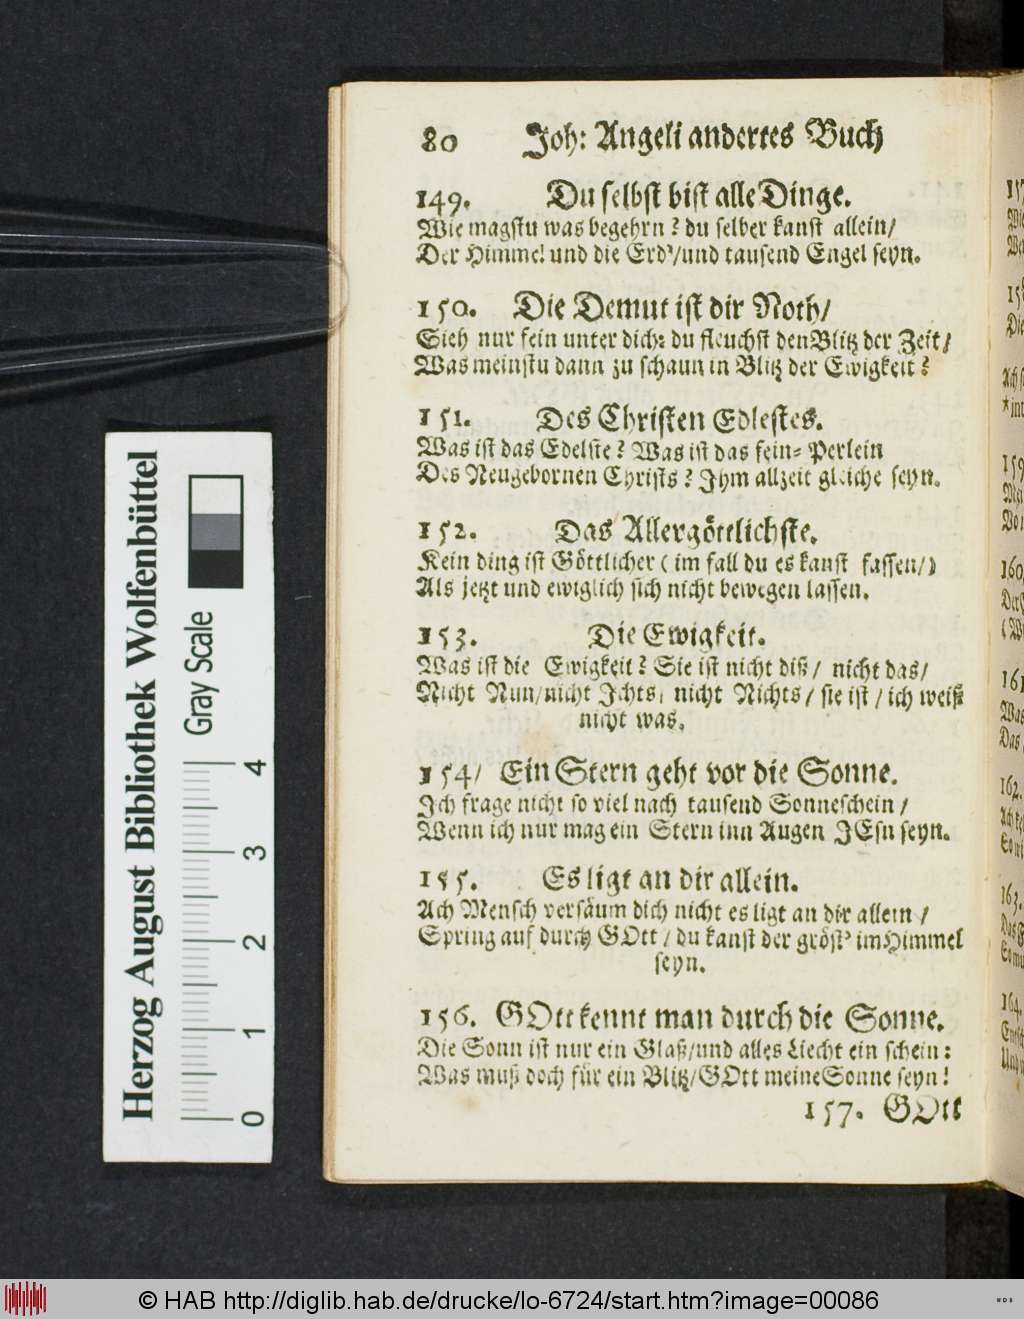 80 Joh: Angeli andertes Buch
149. Du selbst bist alle Dinge.
Wie magstu was begehrn? du selber kanst allein/
Der Himmel und die Erd'/und tausend Engel seyn.
150. Die Demut ist dir Noth/
Sieh nur fein unter dich: du fleuchst den Blitz der Zeit/
Was meinstu dann zu schaun in Blitz der Ewigkeit?
151. Des Christen Edlestes.
Was ist das Edelste? Was ist das fein-Perlein
Des Neugebornen Christs? Ihm allzeit gleiche seyn.
152. Das Allergöttlichste.
Kein ding ist Göttlicher (im fall du es kanst fassen/)
Als jetzt und ewiglich sich nicht bewegen lassen.
153. Die Ewigkeit.
Was ist die Ewigkeit? Sie ist nicht diß/ nicht das/
Nicht Nun/nicht Ichts, nicht Nichts/ sie ist/ich weiß
nicht was.
154/ Ein Stern geht vor die Sonne.
Ich frage nicht so viel nach tausend Sonneschein/
Wenn ich nur mag ein Stern inn Augen JEsu seyn.
155. Es ligt an dir allein.
Ach Mensch versäum dich nicht es ligt an dir allein/
Spring auf durch GOtt/du kanst der gröst' im Himmel
seyn.
156. GOtt kennt man durch die Sonne.
Die Sonn ist nur ein Glaß/und alles Liecht ein schein:
Was muß doch für ein Blitz/GOtt meine Sonne seyn!
157. GOtt
Herzog August Bibliothek Wolfenbüttel
Gray Scale
0 1 2 3 4
© HAB http://diglib.hab.de/drucke/lo-6724/start.htm?image=00086